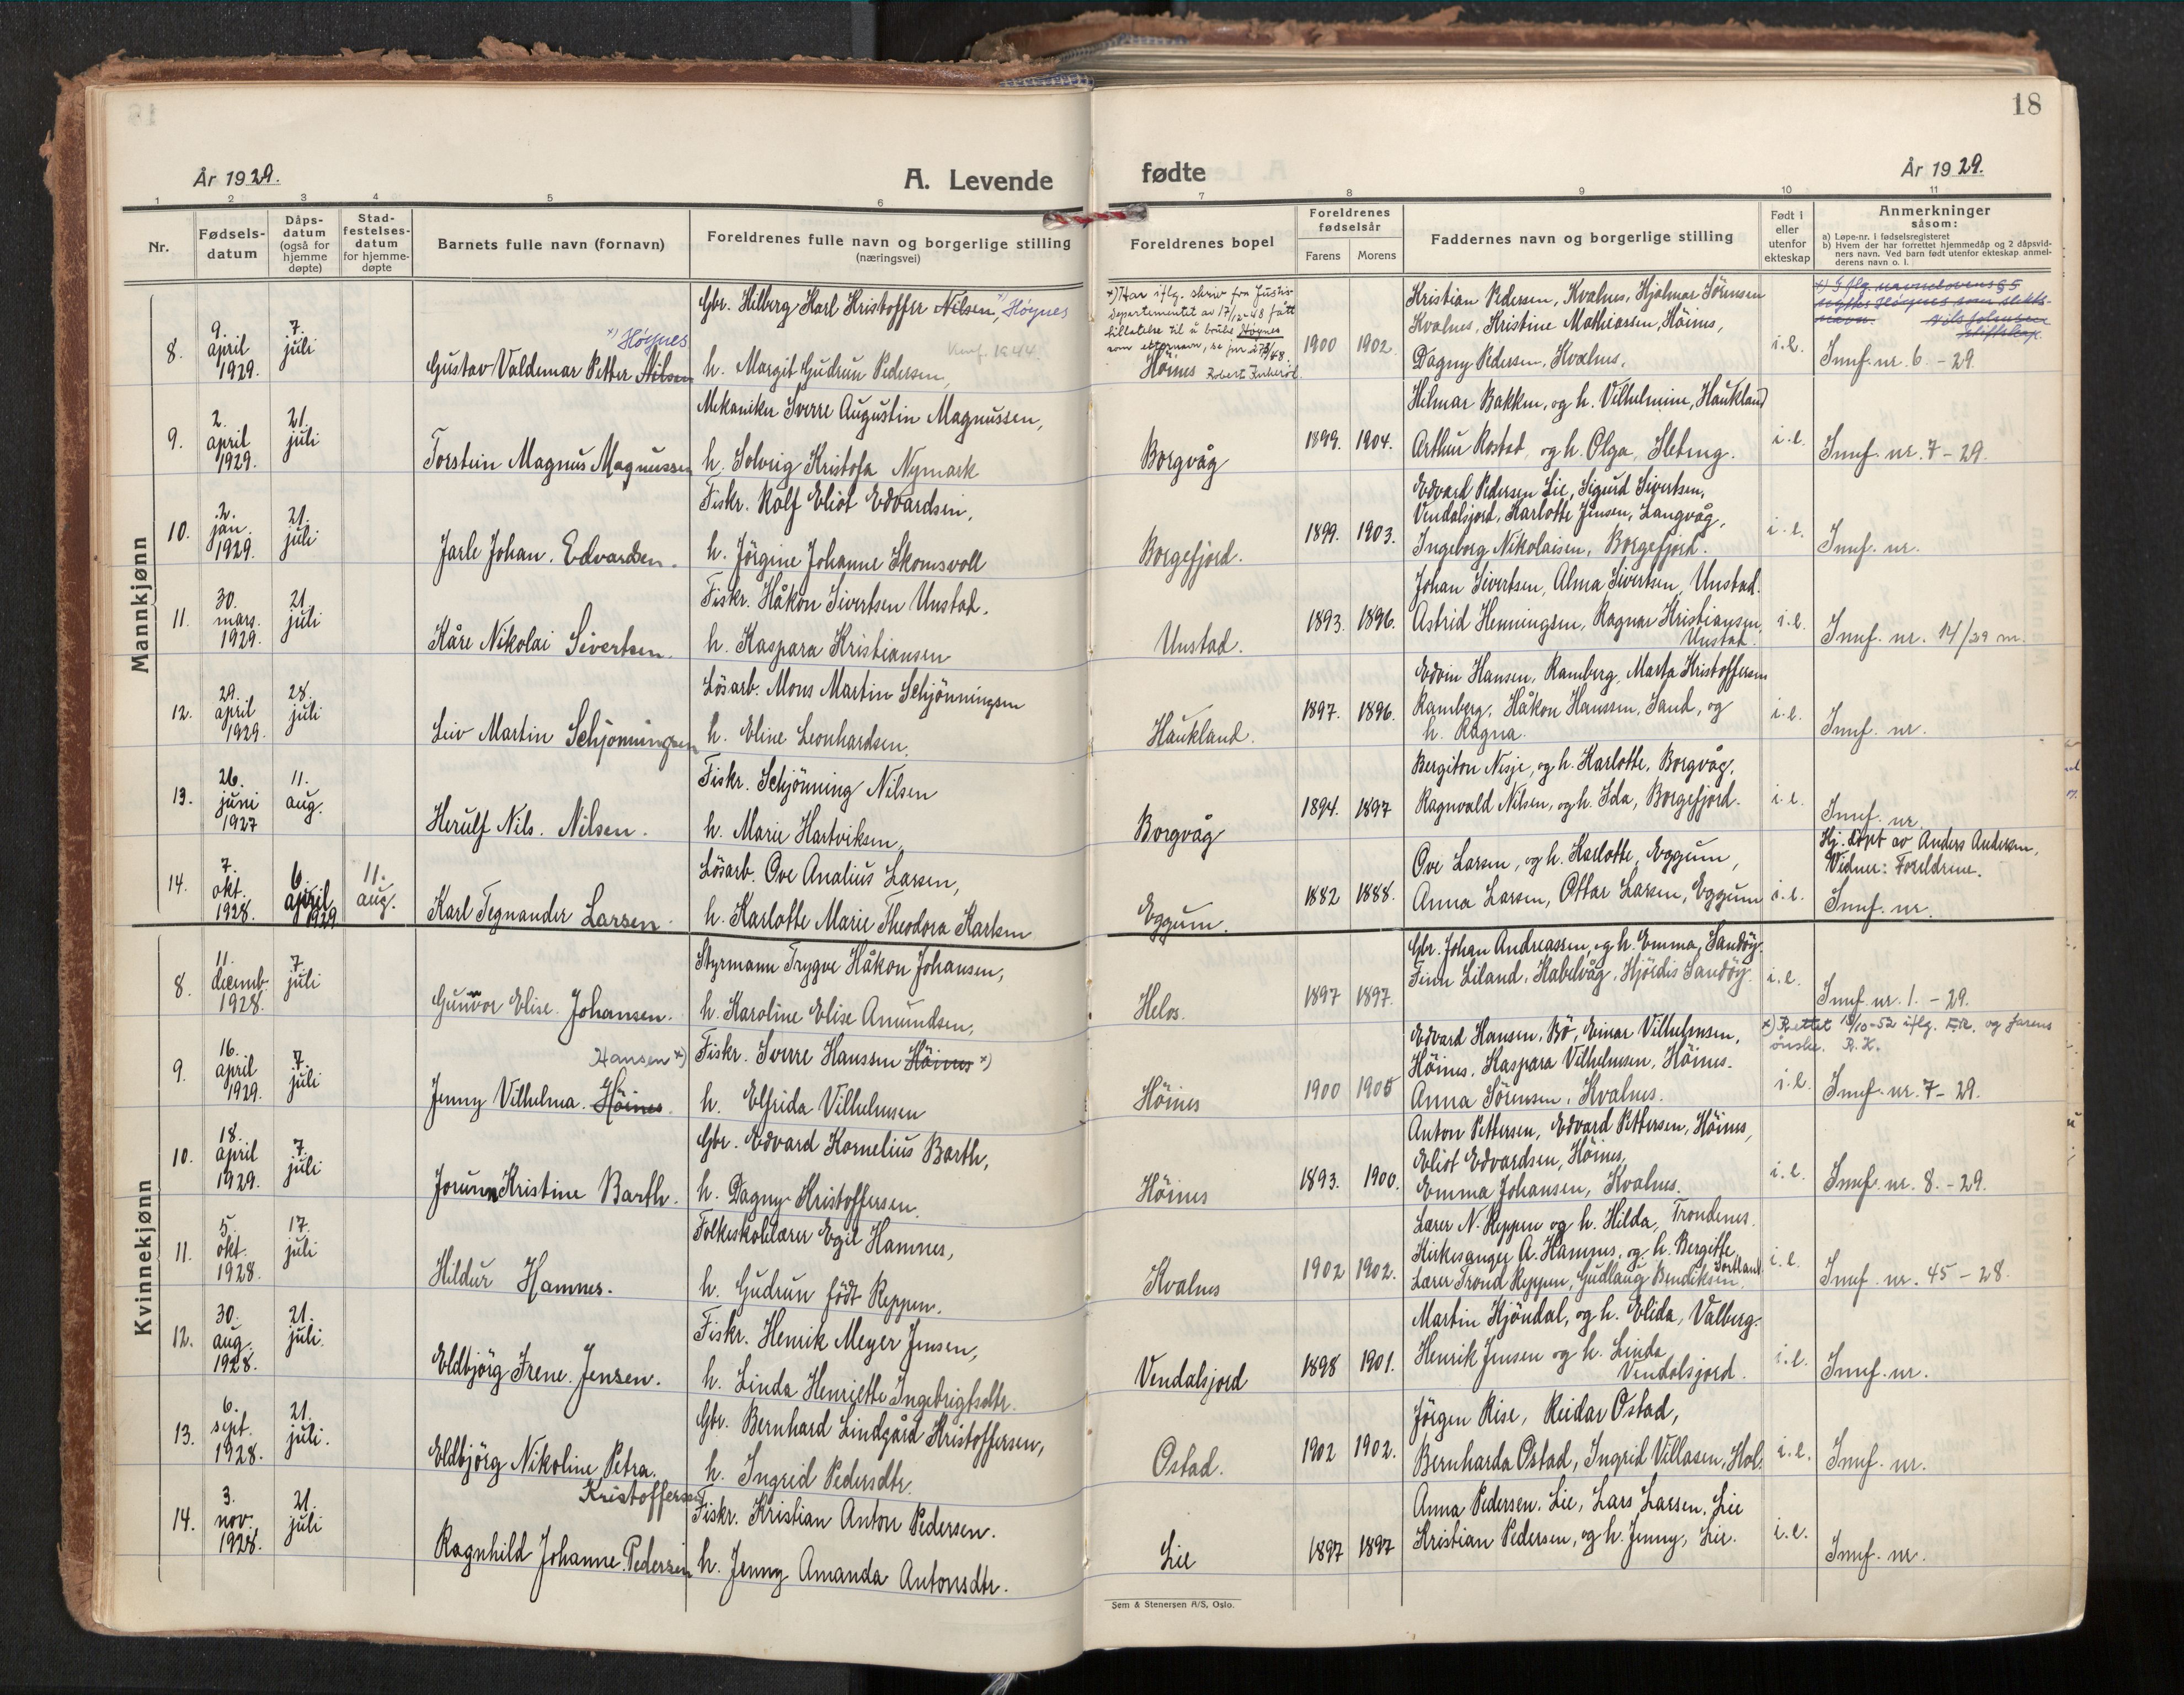 18
År 1929.
A. Levende
fødte
År 1929.
1 2 3 4 5 6 7 8 9 10 11
Nr.
Fødsels-
datum
Dåps-
datum
(også for
hjemme
døpte)
Stad-
festelses-
datum
for hjemme-
døpte
Barnets fulle navn (fornavn)
Foreldrenes fulle navn og borgerlige stilling
(næringsvei)
Foreldrenes bopel
Foreldrenes
fødselsår
Farens Morens
Faddernes navn og borgerlige stilling
Født i
eller
utenfor
ekteskap
Anmerkninger
såsom:
a) Løpe-nr. i fødselsregisteret
b) Hvem der har forrettet hjemmedåp og 2 dåpsvid-
ners navn. Ved barn født utenfor ekteskap anmel-
derens navn o. l.
Mannkjønn
8.
9.
april
1929.
7.
juli
x) Høynes
Gustav Valdemar Petter Nilsen
Gbr. Hilberg Karl Kristoffer Nilsen, x) Høynes
Konf. 1944.
h. Margit Gudrun Pedersen,
x) Har iflg. skriv fra Justis-
departementet av 17/12-48 fått
tillatelse til å bruke Høynes
som etternavn, se jnr.
Höines
1900 1902.
Kristian Pedersen, Kvalnes, Hjalmar Sörensen
Kvalnes, Kristine Mathiassen, Höines,
Dagny Pedersen, Kvalnes.
i.e.
x) Iflg. navnelovens § 5
Høynes som slekts-
navn.
Innf. nr. 6. - 29.
9.
2.
april
1929.
21.
juli
Torstein Magnus Magnussen
Mekaniker Sverre Augustin Magnussen,
h. Solveig Kristofa Nymark
Borgvåg
1899. 1904.
Hilmar Bakken, og h. Vilhelmine, Haukland
Arthur Rostad, og h. Olga, Sleteng.
i.e.
Innf. nr. 7 - 29.
10.
2.
jan.
1929.
21.
juli
Jarle Johan. Edvardsen.
Fiskr. Rolf Eliot Edvardsen,
h. Jörgine Johanne Skomsvoll
Borgefjord.
1899. 1903.
Edvard Pedersen Lie, Sigurd Sivertsen,
Vendalsjord, Karlotte Jensen, Langvåg,
Ingeborg Nikolaisen, Borgefjord.
i.e.
Innf. nr.
11.
30.
mars.
1929.
21.
juli
Kåre Nikolai Sivertsen.
Fiskr. Håkon Sivertsen Unstad.
h. Kaspara Kristiansen
Unstad.
1893. 1896.
Johan Sivertsen, Alma Sivertsen, Unstad.
Astrid Henningsen, Ragnar Kristiansen,
Unstad.
i.e.
Innf. nr. 14/29 m.
12.
29.
april
1929.
28.
juli
Leiv Martin Schjönningsen
Lösarb. Mons Martin Schjönningsen
h. Eline Leonhardsen.
Haukland.
1897. 1896.
Edvin Hansen, Ramberg, Marta Kristoffersen
Ramberg, Håkon Hanssen, Sand, og
h. Ragna.
i.e.
Innf. nr.
13.
26.
juni
1927
11.
aug.
Herulf Nils. Nilsen.
Fiskr. Schjönning Nilsen
h. Marie Hartviksen,
Borgvåg
1894. 1897
Bergiton Nesje, og h. Karlotte, Borgvåg,
Ragnvald Nilsen, og h. Ida, Borgefjord.
i.e.
Innf. nr.
14.
7.
okt.
1928.
6.
april
1929
11.
aug.
Karl Tegnander Larsen.
Lösarb. Ove Analius Larsen,
h. Karlotte Marie Theodora Karlsen
Eggum.
1882 1888.
Ove Larsen, og h. Karlotte, Eggum,
Anna Larsen, Ottar Larsen, Eggum
i.e.
Hj. döpt av Anders Andersen,
Vidner: Foreldrene.
Innf. nr.
Kvinnekjønn
8.
11.
decemb.
1928.
7.
juli
Gunvor Elise. Johansen.
Styrmann Trygve Håkon Johansen,
h. Karoline Elise Amundsen,
Helos.
1897 1897.
Gbr. Johan Andreassen, og h. Emma, Sandöy.
Finn Liland, Kabelvåg, Hjördis Sandöy.
i.e.
Innf. nr. 1. - 29.
9.
16.
april
1929.
7.
juli
Hansen x)
Jenny Vilhelma. Höines.
Fiskr. Sverre Hanssen Höines x)
h. Elfrida Vilhelmsen
Höines
1900 1905
Edvard Hansen, Bö, Einar Vilhelmsen,
Höines, Kaspara Vilhelmsen, Höines.
Anna Sörensen, Kvalnes.
i.e.
x) Rettet 18/10-52 iflg. F.R. og farens
ønske. R.K.
Innf. nr. 7 - 29.
10.
18.
april
1929.
7.
juli
Jorunn Kristine Barth.
Gbr. Edvard Kornelius Barth,
h. Dagny Kristoffersen.
Höines
1893. 1900.
Anton Pettersen, Edvard Pettersen, Höines,
Eliot Edvardsen, Höines,
Emma Johansen, Kvalnes.
i.e.
Innf. nr. 8. - 29.
11.
5.
okt.
1928.
17.
juli
Hildur Hamnes.
Folkeskolelærer Egil Hamnes,
h. Gudrun födt Reppen.
Kvalnes
1902 1902.
Lærer N. Reppen og h. Hilda, Trondenes.
Kirkesanger A. Hamnes, og h. Bergitte,
Sortland
Lærer Trond Reppen, Gudlaug Bendiksen.
i.e.
Innf. nr. 45 - 28.
12.
30.
aug.
1928.
21.
juli.
Eldbjörg Irene. Jensen.
Fiskr. Henrik Meyer Jensen,
h. Linda Henriette Ingebrigtsdtr.
Vendalsjord
1898 1901.
Martin Kjöndal, og h. Elida, Valberg.
Henrik Jensen og h. Linda
Vendalsjord.
i.e.
Innf. nr.
13.
6.
sept.
1928.
21.
juli.
Eldbjörg Nikoline Petra.
Kristoffersen
Gbr. Bernhard Lindgård Kristoffersen,
h. Ingrid Pedersdtr.
Ostad.
1902 1902.
Jörgen Rise, Reidar Ostad,
Bernharda Ostad, Ingrid Villasen, Hol.
i.e.
Innf. nr.
14.
3.
nov.
1928.
21.
juli
Ragnhild Johanne Pedersen
Fiskr. Kristian Anton Pedersen.
h. Jenny Amanda Antonsdtr.
Lie
1897 1897
Anna Pedersen, Lie, Lars Larsen, Lie
Kristian Pedersen, og h. Jenny, Lie.
i.e.
Innf. nr.
Sem & Stenersen A/S, Oslo.